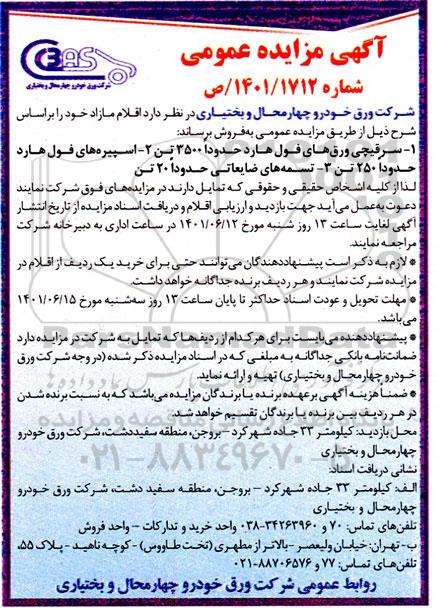 آگهی مزایده عمومی
شماره ۱۴۰۱/۱۷۱۲/ص
CBAS
شرکت ورق خودرو چهارمحال و بختیاری
شرکت ورق خودرو چهارمحال و بختیاری در نظر دارد اقلام مازاد خود را براساس
شرح ذیل از طریق مزایده عمومی به‌فروش برساند:
۱- سرقیچی ورق‌های فول هارد حدوداً ۳۵۰۰ تن ۲- اسپیره‌های فول هارد
حدوداً ۲۵۰ تن ۳- تسمه‌های ضایعاتی حدوداً ۲۰ تن
لذا از کلیه اشخاص حقیقی و حقوقی که تمایل دارند در مزایده‌های فوق شرکت نمایند
دعوت به‌عمل می‌آید جهت بازدید و ارزیابی اقلام و دریافت اسناد مزایده از تاریخ انتشار
آگهی لغایت ساعت ۱۳ روز شنبه مورخ ۱۴۰۱/۰۶/۱۲ در ساعات اداری به دبیرخانه شرکت
مراجعه نمایند.
* لازم به ذکر است پیشنهاددهندگان می‌توانند حتی برای خرید یک ردیف از اقلام در
مزایده شرکت نمایند و هر ردیف برنده جداگانه خواهد داشت.
* مهلت تحویل و عودت اسناد حداکثر تا پایان ساعت ۱۳ روز سه‌شنبه مورخ ۱۴۰۱/۰۶/۱۵
می‌باشد.
* پیشنهاددهنده می‌بایست برای هر کدام از ردیف‌ها که تمایل به شرکت در مزایده دارد
ضمانت‌نامه بانکی جداگانه به مبلغی که در اسناد مزایده ذکر شده (در وجه شرکت ورق
خودرو چهارمحال و بختیاری) تهیه و ارائه نماید.
* ضمناً هزینه آگهی برعهده برنده یا برندگان مزایده می‌باشد که به نسبت برنده شدن
در هر ردیف بین برنده یا برندگان تقسیم خواهد شد.
محل بازدید: کیلومتر ۳۳ جاده شهرکرد – بروجن، منطقه سفیددشت، شرکت ورق خودرو
چهارمحال و بختیاری
نشانی دریافت اسناد:
الف: کیلومتر ۳۳ جاده شهرکرد – بروجن، منطقه سفید دشت، شرکت ورق خودرو
چهارمحال و بختیاری
تلفن‌های تماس: ۷۰ و ۳۴۲۶۳۹۶۰-۰۳۸ واحد خرید و تدارکات – واحد فروش
ب- تهران: خیابان ولیعصر - بالاتر از مطهری (تخت طاووس) - کوچه ناهید - پلاک ۵۵،
تلفن‌های تماس: ۷۷ و ۸۸۷۰۶۵۷۶-۰۲۱
روابط عمومی شرکت ورق خودرو چهارمحال و بختیاری
۰۲۱-۸۸۳۴۹۶۷۰